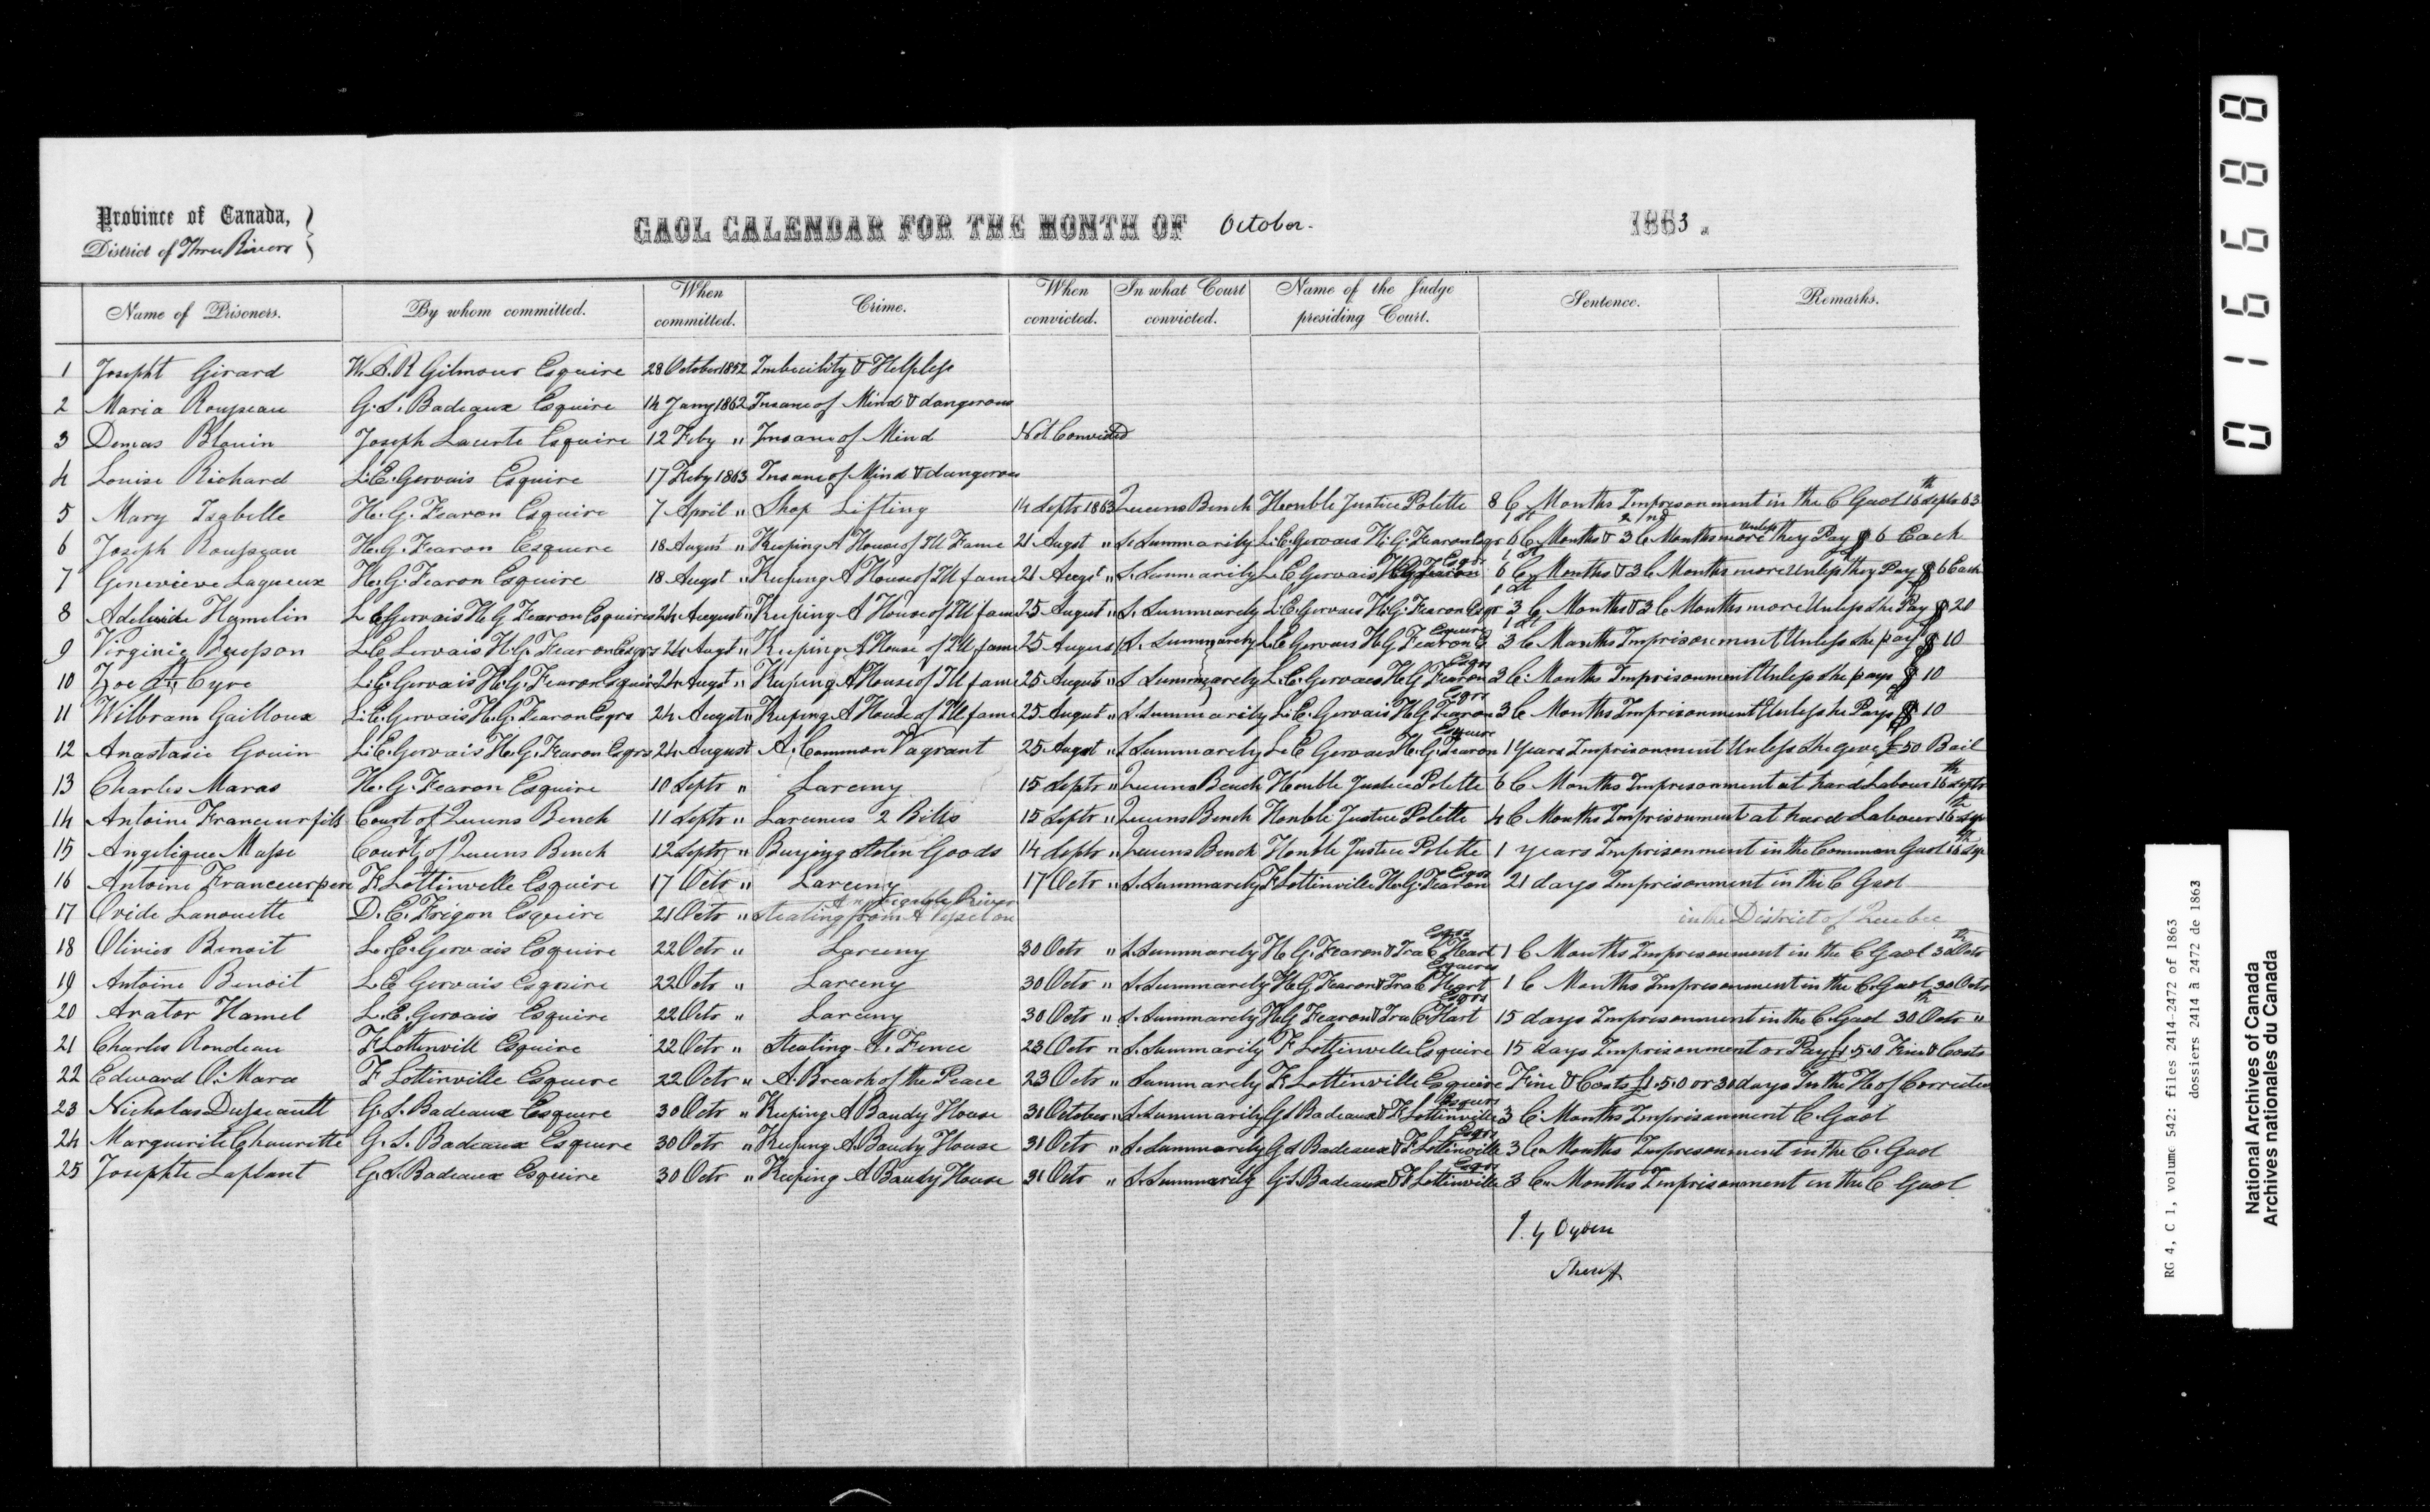 Province of Canada,
District of Three Rivers
GAOL CALENDAR FOR THE MONTH OF October. 1863.
Name of Prisoners. By whom committed. When committed. Crime. When convicted. In what Court convicted. Name of the Judge presiding Court. Sentence. Remarks.
1 Josepht Girard W. A. R Gilmour Esquire 28 October 1852 Imbecility & Helpless
2 Maria Rousseau G. S. Badeaux Esquire 14 Jany 1862 Insane of Mind & dangerous
3 Demas Blouin Joseph Esquire 12 Feby " Insane of Mind Not Convicted
4 Louise Richard L. E. Gervais Esquire 17 Feby 1863 Insane of Mind & dangerous
5 Mary Isabelle H. G. Fearon Esquire 7 April " Shop Lifting 14 Septr 1863 Queens Bench Honble Justice Polette 8 C Months Imprisonment in the C Gaol 16th Septr 63
6 Joseph Rousseau H. G. Fearon Esquire 18 August " Keeping A House of Ill Fame 21 Augst " S. Summarily L. E. Gervais H. G. Fearon Esqr 1st 6 C Months & 2/nd 3 C Months more unless they Pay $ 6 Each
7 Genevieve Lagueux H. G. Fearon Esquire 18 Augst " Keeping A House of Ill fame 21 Augst " S. Summarily L. E Gervais H G Fearon Esqrs 1st 6 C Months & 3 C Months more Unless they Pay $ 6 Each
8 Adelaide Hamelin L E Gervais H G Fearon Esquires 24 August " Keeping A House of Ill fame 25 August " S. Summarely L. E. Gervais H. G. Fearon Esqr 1st 3 C Months & 3 C Months more Unless She Pay $ 20
9 Virginie Buisson L. E. Gervais H. G. Fearon Esqrs 24 Augst " Keeping A House of Ill fame 25 August S. Summarely L. E Gervais H G Fearon Esquire 1st 3 C Months Imprisonment Unless she pay $ 10
10 Zoe St Cyre L. E. Gervais H. G. Fearon Esquire 24 Augst " Keeping A House of Ill fame 25 August " S Summarely L. E. Gervais H G Fearon Esqrs 3 C. Months Imprisonment Unless she pays $ 10
11 Wilbram Gailloux L. E. Gervais H. G. Fearon Esqrs 24 Augst " Keeping A House of Ill fame 25 August " S. Summarily L. E. Gervais H G Fearon Esqrs 3 C Months Imprisonment Unless he Pays $ 10
12 Anastasie Gouin L. E. Gervais H. G. Fearon Esqrs 24 August A. Common Vagrant 25 Augst " S Summarely L. E Gervais H. G. Fearon Esquire 1 Years Imprisonment Unless She give £ 50 Bail
13 Charles Maras H. G. Fearon Esquire 10 Septr " Larceny 15 Septr " Queens Bench Honble Justice Polette 6 C Months Imprisonment at hard Labour 16th Septr
14 Antoine Franceur fils Court of Queens Bench 11 Septr " Larcenes 2 Bills 15 Septr " Queens Bench Honble Justice Polette 4 C Months Imprisonment at hard Labour 16th Sep
15 Angelique Masse Court of Queens Bench 12 Septr " Buying Stolin Goods 14 Septr " Queens Bench Honble Justice Polette 1 years Imprisonment in the Common Gaol 16th Sep
16 Antoine Franceur pere F. Lottinville Esquire 17 Octr " Larceny 17 Octr " S. Summarely F Lottinville H. G. Fearon Esqrs 21 days Imprisonment in the C Gaol
17 Ovide Lanouette D. E. Frigon Esquire 21 Octr " Stealing from A Vessel on A navigable River in the District of Quebec
18 Olivier Benoit L. E. Gervais Esquire 22 Octr " Larceny 30 Octr " S. Summarely H G. Fearon & Ira C Hart Esqrs 1 C Months Imprisonment in the C Gaol 30th Octr
19 Antoine Benoit L E Gervais Esquire 22 Octr " Larceny 30 Octr " S. Summarely H G. Fearon & Ira C Hart Esquires 1 C Months Imprisonment in the C. Gaol 30 Octr
20 Arator Hamel L. E. Gervais Esquire 22 Octr " Larceny 30 Octr " S. Summarely H G Fearon & Ira C. Hart Esqrs 15 days Imprisonment in the C. Gaol 30th Octr "
21 Charles Rondeau F Lottinvill Esquire 22 Octr " Stealing A. Fence 23 Octr " S. Summarily F Lottinville Esquire 15 days Imprisonment or Pay £1.5.0 Fine & Costs
22 Edward O. Mara F Lottinville Esquire 22 Octr " A. Breach of the Peace 23 Octr " Summarely F. Lottinville Esquire Fine & Costs £1.5.0 or 30 days In the H of Correction
23 Nicholas Dusseault G. S. Badeaux Esquire 30 Octr " Keeping A Baudy House 31 October " S. Summarily G S Badeaux & F. Lottinville Esqurs 3 C. Months Imprisonment C. Gaol
24 Marguerite Chaurette G. S. Badeaux Esquire 30 Octr " Keeping A Baudy House 31 Octr " S. Summarely G S Badeaux & F. Lottinville Esqrs 3 C. Months Imprisonment in the C. Gaol
25 Josephte Laplant G. S Badeaux Esquire 30 Octr " Keeping A Baudy House 31 Octr " S. Summarily G. S. Badeaux & F Lottinville Esqrs 3 C. Months Imprisonment in the C Gaol
I. G Ogden
Sheriff
016688
RG 4, C 1, volume 542: files 2414-2472 of 1863
dossiers 2414 à 2472 de 1863
National Archives of Canada
Archives nationales du Canada